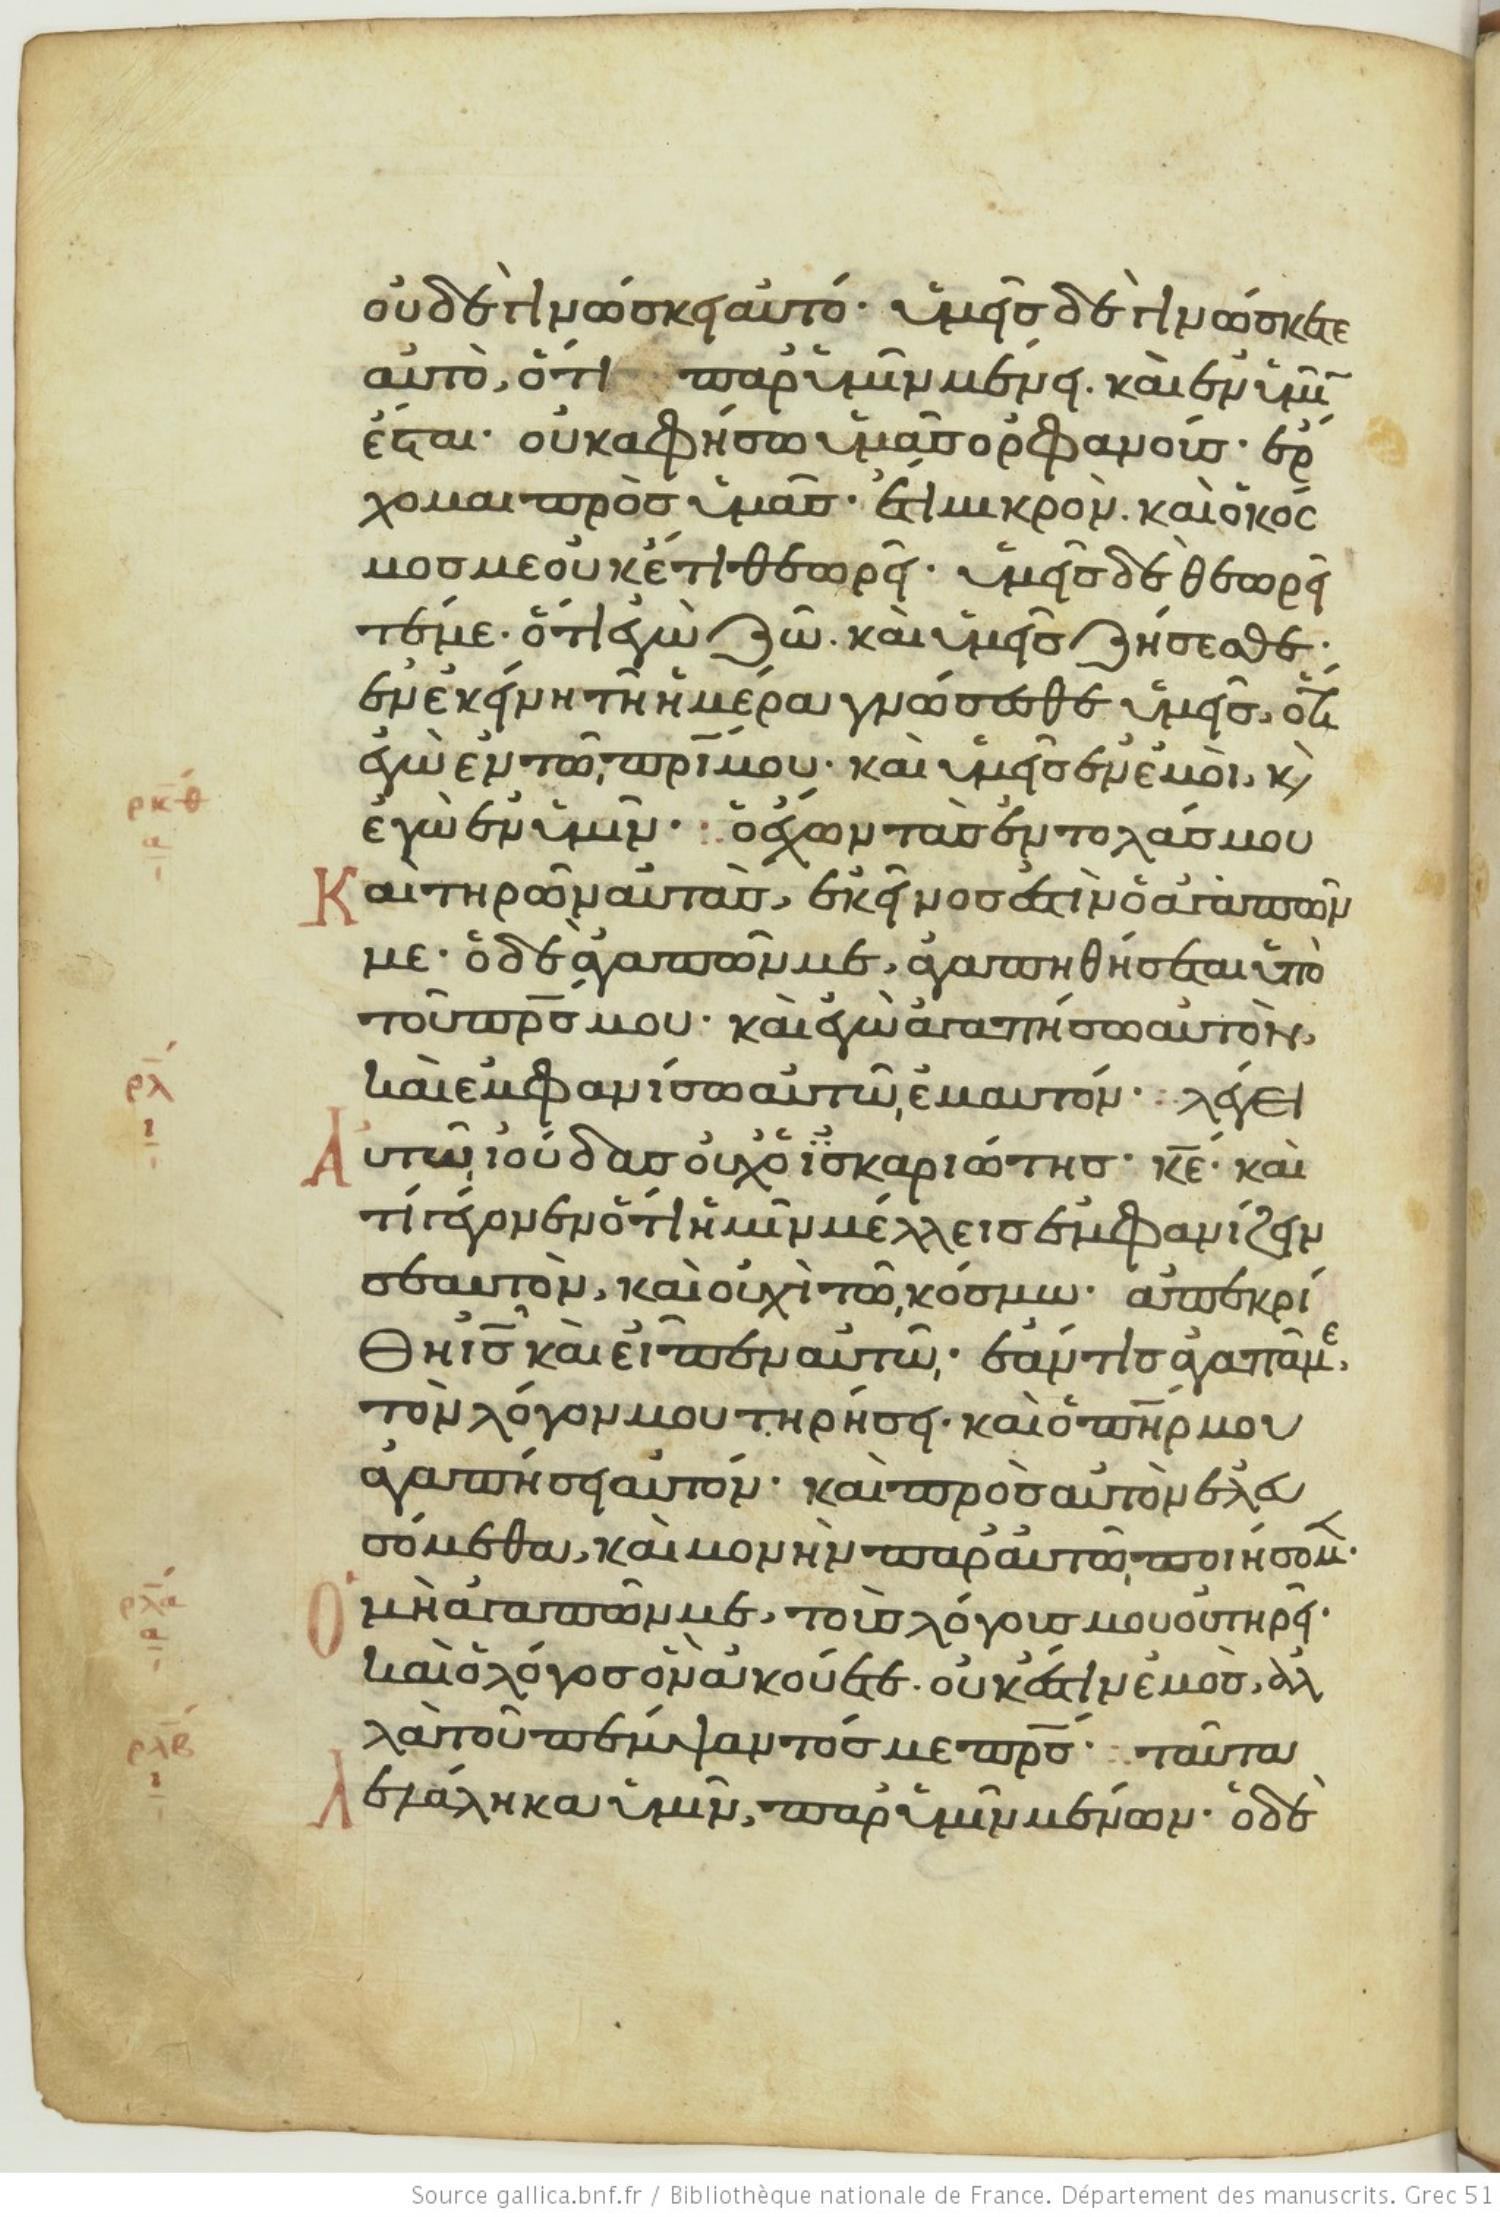 οὐδὲ γινώσκει αὐτό· ὑμεῖς δὲ γινώσκετε
αὐτὸ, ὅτι παρ' ὑμῖν μένει. καὶ ἐν ὑμῖ
ἔσται· οὐκ ἀφήσω ὑμᾶς ὀρφανούς· ἔρ
χομαι πρὸς ὑμᾶς· ἔτι μικρὸν. καὶ ὁ κόσ
μος με οὐκέτι θεωρεῖ· ὑμεῖς δὲ θεωρεῖ
τέ με· ὅτι ἐγὼ ζῶ. καὶ ὑμεῖς ζήσεσθε·
ἐν ἐκείνη τῆ ἡμέρα γνώσεσθε ὑμεῖς, ὅτι
ἐγὼ ἐν τῶ πρί μου· καὶ ὑμεῖς ἐν ἐμοὶ, κὶ
ἐγὼ ἐν ὑμῖν· ὁ ἔχων τὰς ἐντολάς μου
ρκθ
Καὶ τηρῶν αὐτὰς, ἐκεῖνος ἐστὶν ὁ ἀγαπῶν
με· ὁ δὲ ἀγαπῶν με, ἀγαπηθήσεται ὑπὸ
τοῦ πρς μου· καὶ ἐγὼ ἀγαπήσω αὐτὸν,
ρλ
καὶ ἐμφανίσω αὐτῶ ἐμαυτόν· λέγει
Αὐτῶ ἰούδας οὐχ ὁ ἰσκαριώτης· κε· καὶ
τί γέγονεν ὅτι ἡμῖν μέλλεις ἐμφανίζειν
σεαυτὸν, καὶ οὐχὶ τῶ κόσμω· ἀπεκρί
θη ις καὶ εἶπεν αὐτῶ· ἐάν τις ἀγαπᾶ με,
τὸν λόγον μου τηρήσει· καὶ ὁ πηρ μου
ἀγαπήσει αὐτόν· καὶ πρὸς αὐτὸν ἐλευ
σόμεθα, καὶ μονὴν παρ' αὐτῶ ποιήσομ·
ρλα
Ὁ μὴ ἀγαπῶν με, τοὺς λόγους μου οὐ τηρεῖ·
καὶ ὁ λόγος ὃν ἀκούετε. οὐκ ἔστιν ἐμὸς, ἀλ
ρλβ
λὰ τοῦ πέμψαντός με πρς· ταῦτα
Λελάληκα ὑμῖν, παρ' ὑμῖν μένων· ὁ δὲ
Source gallica.bnf.fr / Bibliothèque nationale de France. Département des manuscrits. Grec 51